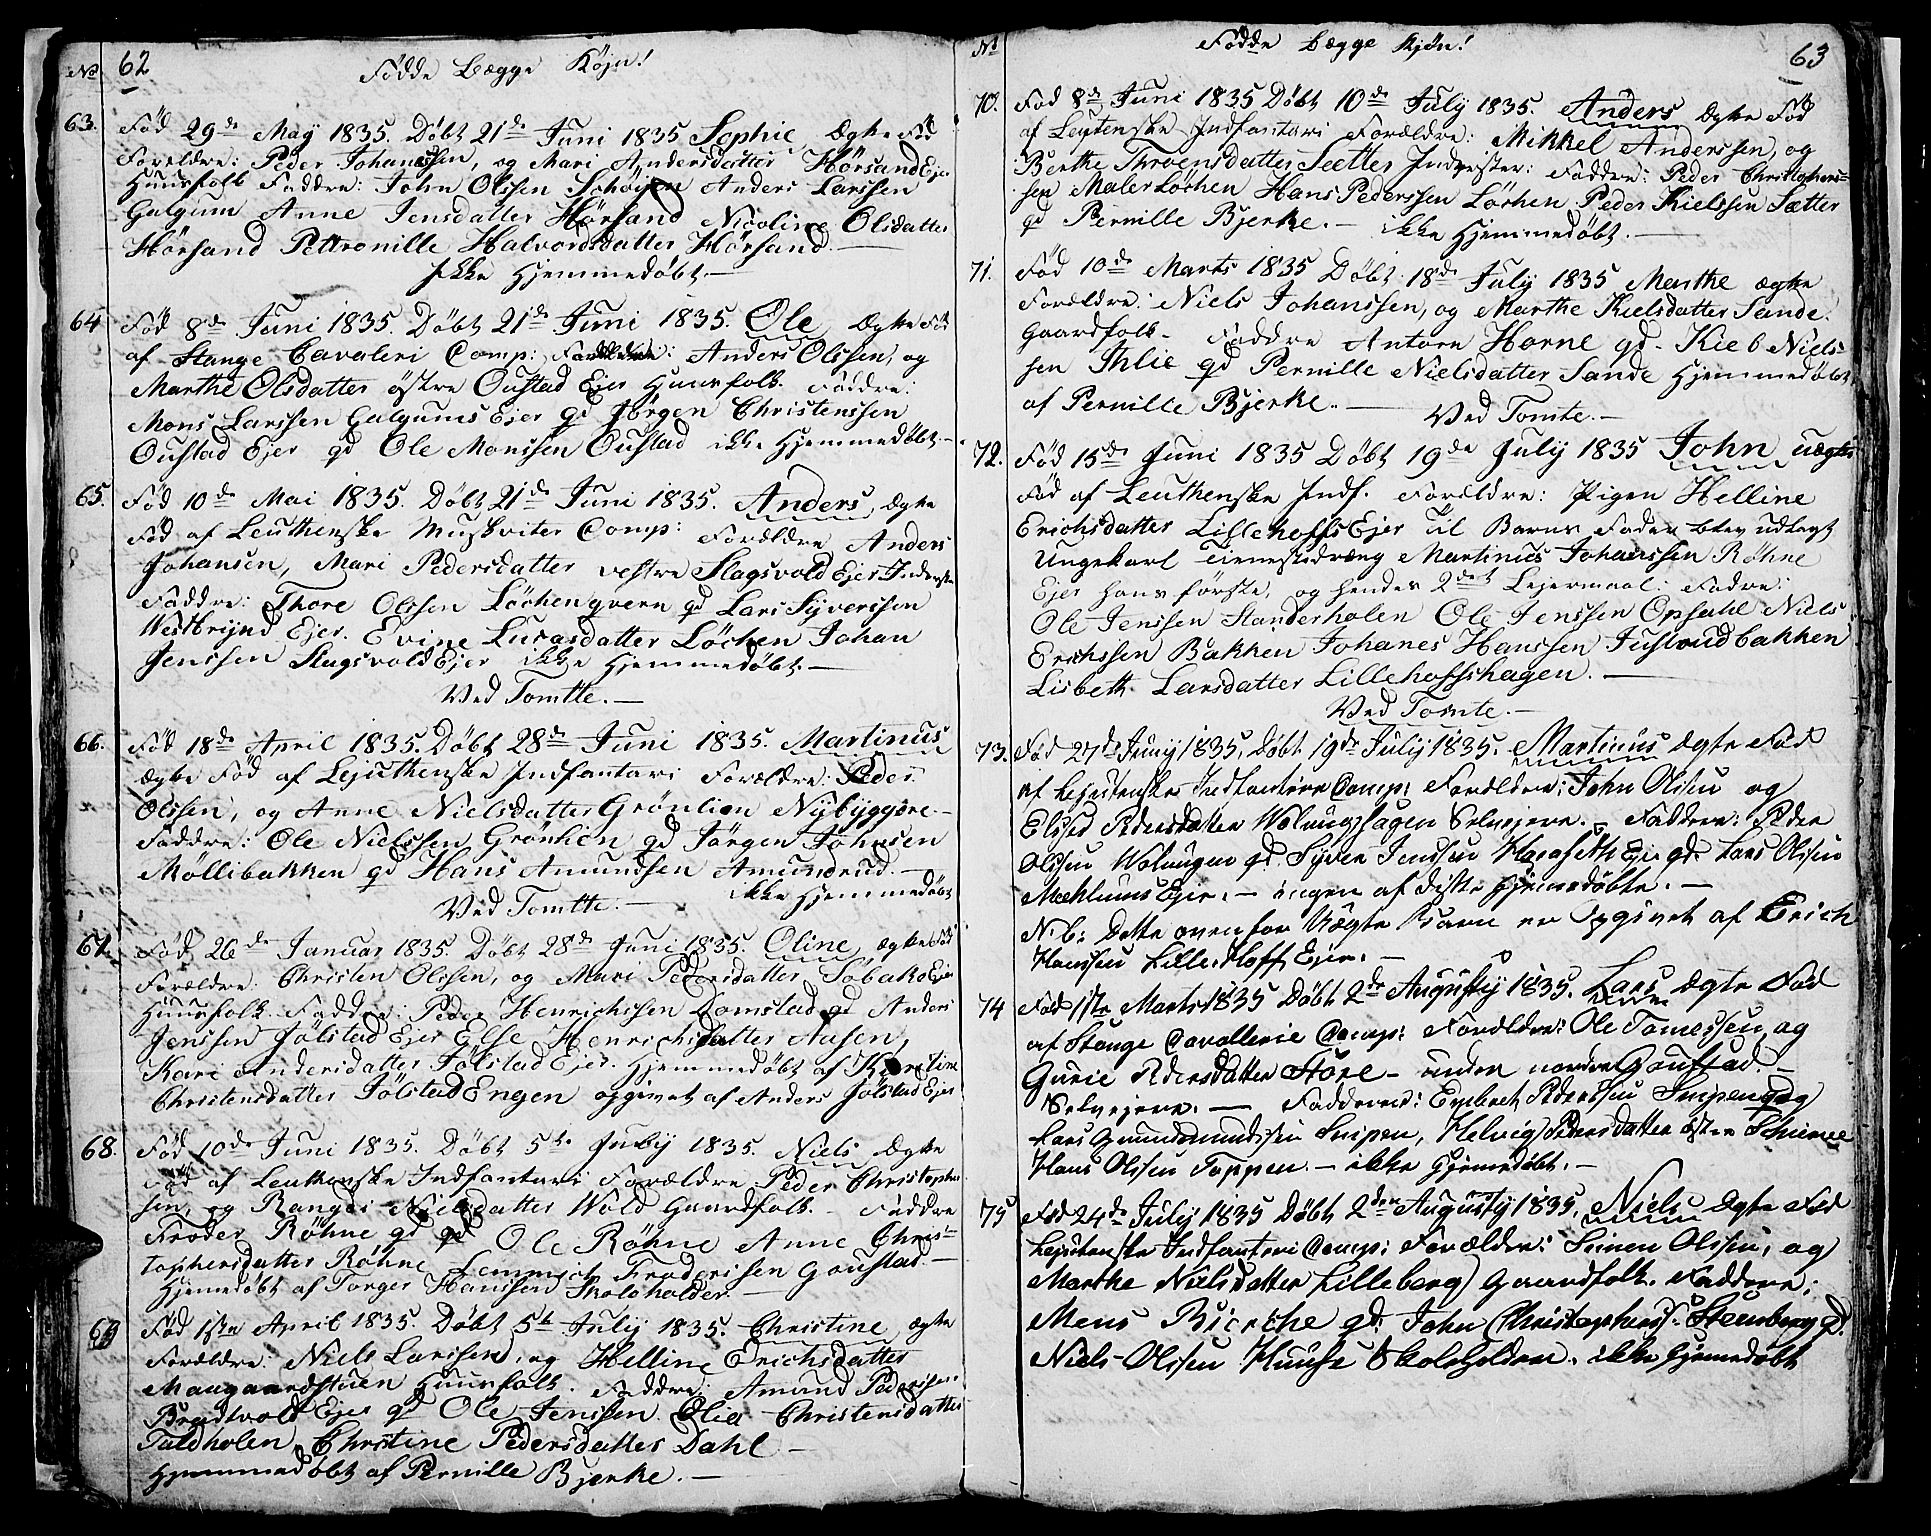 No 62 Födde Begge Kjøn!
63. Föd 29de May 1835. Döbt 21de Juni 1835 Sophie, Ægte Föd
Forældre: Peder Johanessen, og Mari Andersdatter Hörsand Ejer
Huusfolk Faddre: John Olssen Schöijen Anders Larssen
Galgum Anne Jensdatter Hörsand Nicoline Olsdatter
Hörsand Pettronille Halvordsdatter Hörsand. —
Ikke Hjemmedöbt. —
64 Föd 8de Juni 1835. Döbt 21de Juni 1835. Ole, Ægte Föd
af Stange Cavaleri Comp: Forældre: Anders Olssen, og
Marthe Olsdatter östre Oustad Ejer Huusfolk. Faddre:
Mons Larssen Galgums Ejer gd Jörgen Christenssen
Oustad Ejer gd Ole Monssen Oustad ikke Hjemmedöbt. —
65. Föd 10de Mai 1835. Döbt 21de Juni 1835. Anders, Ægte
Föd af Leuthenske Muskviter Comp: Forældre Anders
Johansen, Mari Pedersdatter vestre Slagsvold Ejer Inderster
Faddre: Thore Olssen Löchengveen gd Lars Syverssen
Westbrijnd Ejer. Evine Lucasdatter Löchen Johan
Jenssen Slagsvold Ejer ikke Hjemmedöbt. —
Ved Tomtte. —
66. Föd 18de April 1835. Döbt 28de Juni 1835. Martinus
Ægte Föd af Lejuthenske Indfantari Forældre: Peder
Olssen, og Anne Nielsdatter Grönlien Nybyggere —
Faddre: Ole Nielssen Grönlien gd Jörgen Johnsen
Möllibakken gd Hans Amundsen Amundrud. —
Ved Tomtte. — ikke Hjemmedöbt
67. Föd 26de Januar 1835. Döbt 28de Juni 1835. Oline, Ægte Föd
Forældre: Christen Olssen, og Mari Pedersdatter Ejer
Huusfolk. Faddre: Peder Henrichssen Domstad gd Anders
Jenssen Jölstad Ejer Else Henrichsdatter Aasen,
Kari Andersdatter Jölstad Ejer. Hjemmedöbt af
Christensdatter Jölstad Engen opgivet af Anders Jölstad Ejer
68. Föd 10de Juni 1835. Döbt 5te July 1835. Niels Ægte
Föd af Leuthenske Indfantari Forældre Peder Christopher
sen, og Rangdi Nielsdatter Wold Gaardfolk. — Faddre
Froder Röhne gd Ole Röhne Anne Chris-
tophersdatter Röhne Lemmich Froderssen Goustad. —
Hjemmedöbt af Torger Hanssen Skoleholder —
69 Föd 1ste April 1835. Döbt 5te July 1835. Christine, Ægte
Forældre: Niels Larssen, og Helline Erichsdatter
Maugaardstuen Huusfolk. Faddre: Amund Pederssen
Bredtvold Ejer gd Ole Jenssen Olia Christensdatter
Taldholen Christine Pedersdatter Dahl —
Hjemmedöbt af Pernille Bjerke. —
No Födde Begge Kjøn! 63
70. Föd 8de Juni 1835 Döbt 10de July 1835. Anders Ægte Föd
af Leutenske Indfantari Forældre: Mikkel Anderssen, og
Berthe Throensdatter Sætter Inderster: Faddre: Peder Christophers-
sen Maler Löchen Hans Pederssen Löchen Peder Kielssen Sætter
gd Pernille Bjerke. — ikke Hjemmedöbt. —
71. Föd 10de Marts 1835 Döbt 18de July 1835 Marthe ægte
Forældre: Niels Johanssen, og Marthe Kielsdatter Sande.
Gaardfolk — Faddre Antore Horne gd. Kield Niels-
sen Ihlie gd Pernille Nielsdatter Sande Hjemmedöbt
af Pernille Bjerke. —
Ved Tomte. —
72. Föd 15de Juni 1835 Döbt 19de July 1835 John uægte
Föd af Leuthenske Indf. Forældre: Pigen Helline
Erichsdatter Lillehoffs Ejer Til Barns Fader blev udlagt
Ungekarl Tienestedræng Martinius Johanssen Röhne
Ejer hans förste, og hendes 2det Lejermaal: Fadre:
Ole Jenssen Standerholen Ole Jenssen Opsahl Niels
Erichssen Bakken Johanes Hanssen Justrudbakken
Lisbeth Larsdatter Lillehoffshagen. —
Ved Tomte. —
73. Föd 27de Juny 1835. Döbt 19de July 1835. Martinus Ægte Föd
af Lejutenske Indfanterie Comp: Forældre: John Olssen og
Elsed Pedersdatter Wolungshagen Selvejere. — Faddere: Peder
Olssen Wolungen gd Syver Jenssen Haraseth Ejer gd. Lars Olssen
Mæhlums Ejer. — ingen af disse hjemedöbte. —
N.b: Dette ovenfor Uægte Barn er Opgivet af Erich
Hanssen Lille-Hoff Ejer. —
74 Föd 1ste Marts 1835 Döbt 2de Augusty 1835. Lars Ægte Föd
af Stange Cavallerie Comp: Forældre: Ole Tomessen, og
Gurie Pedersdatter Höre — under nordre Goustad. —
Selvejere. — Faddere: Engebret Pederssen Snipen gd
Lars Gunderssen Snipen, Helvig Pedersdatter öster
Hans Olssen Toppen. — ikke hjemedöbt. —
75 Föd 24de July 1835 Döbt 2den Augusty 1835. Niels Ægte Föd
Lejutenske Indfanteri Comp: Forældre: Simen Olssen, og
Marthe Nielsdatter Lilleberg Gaardfolk. Faddere:
Mens Bierche gd. John Christophers. Stenberg gd.
Niels Olssen Huuse Skoleholder. ikke hjemedöbt